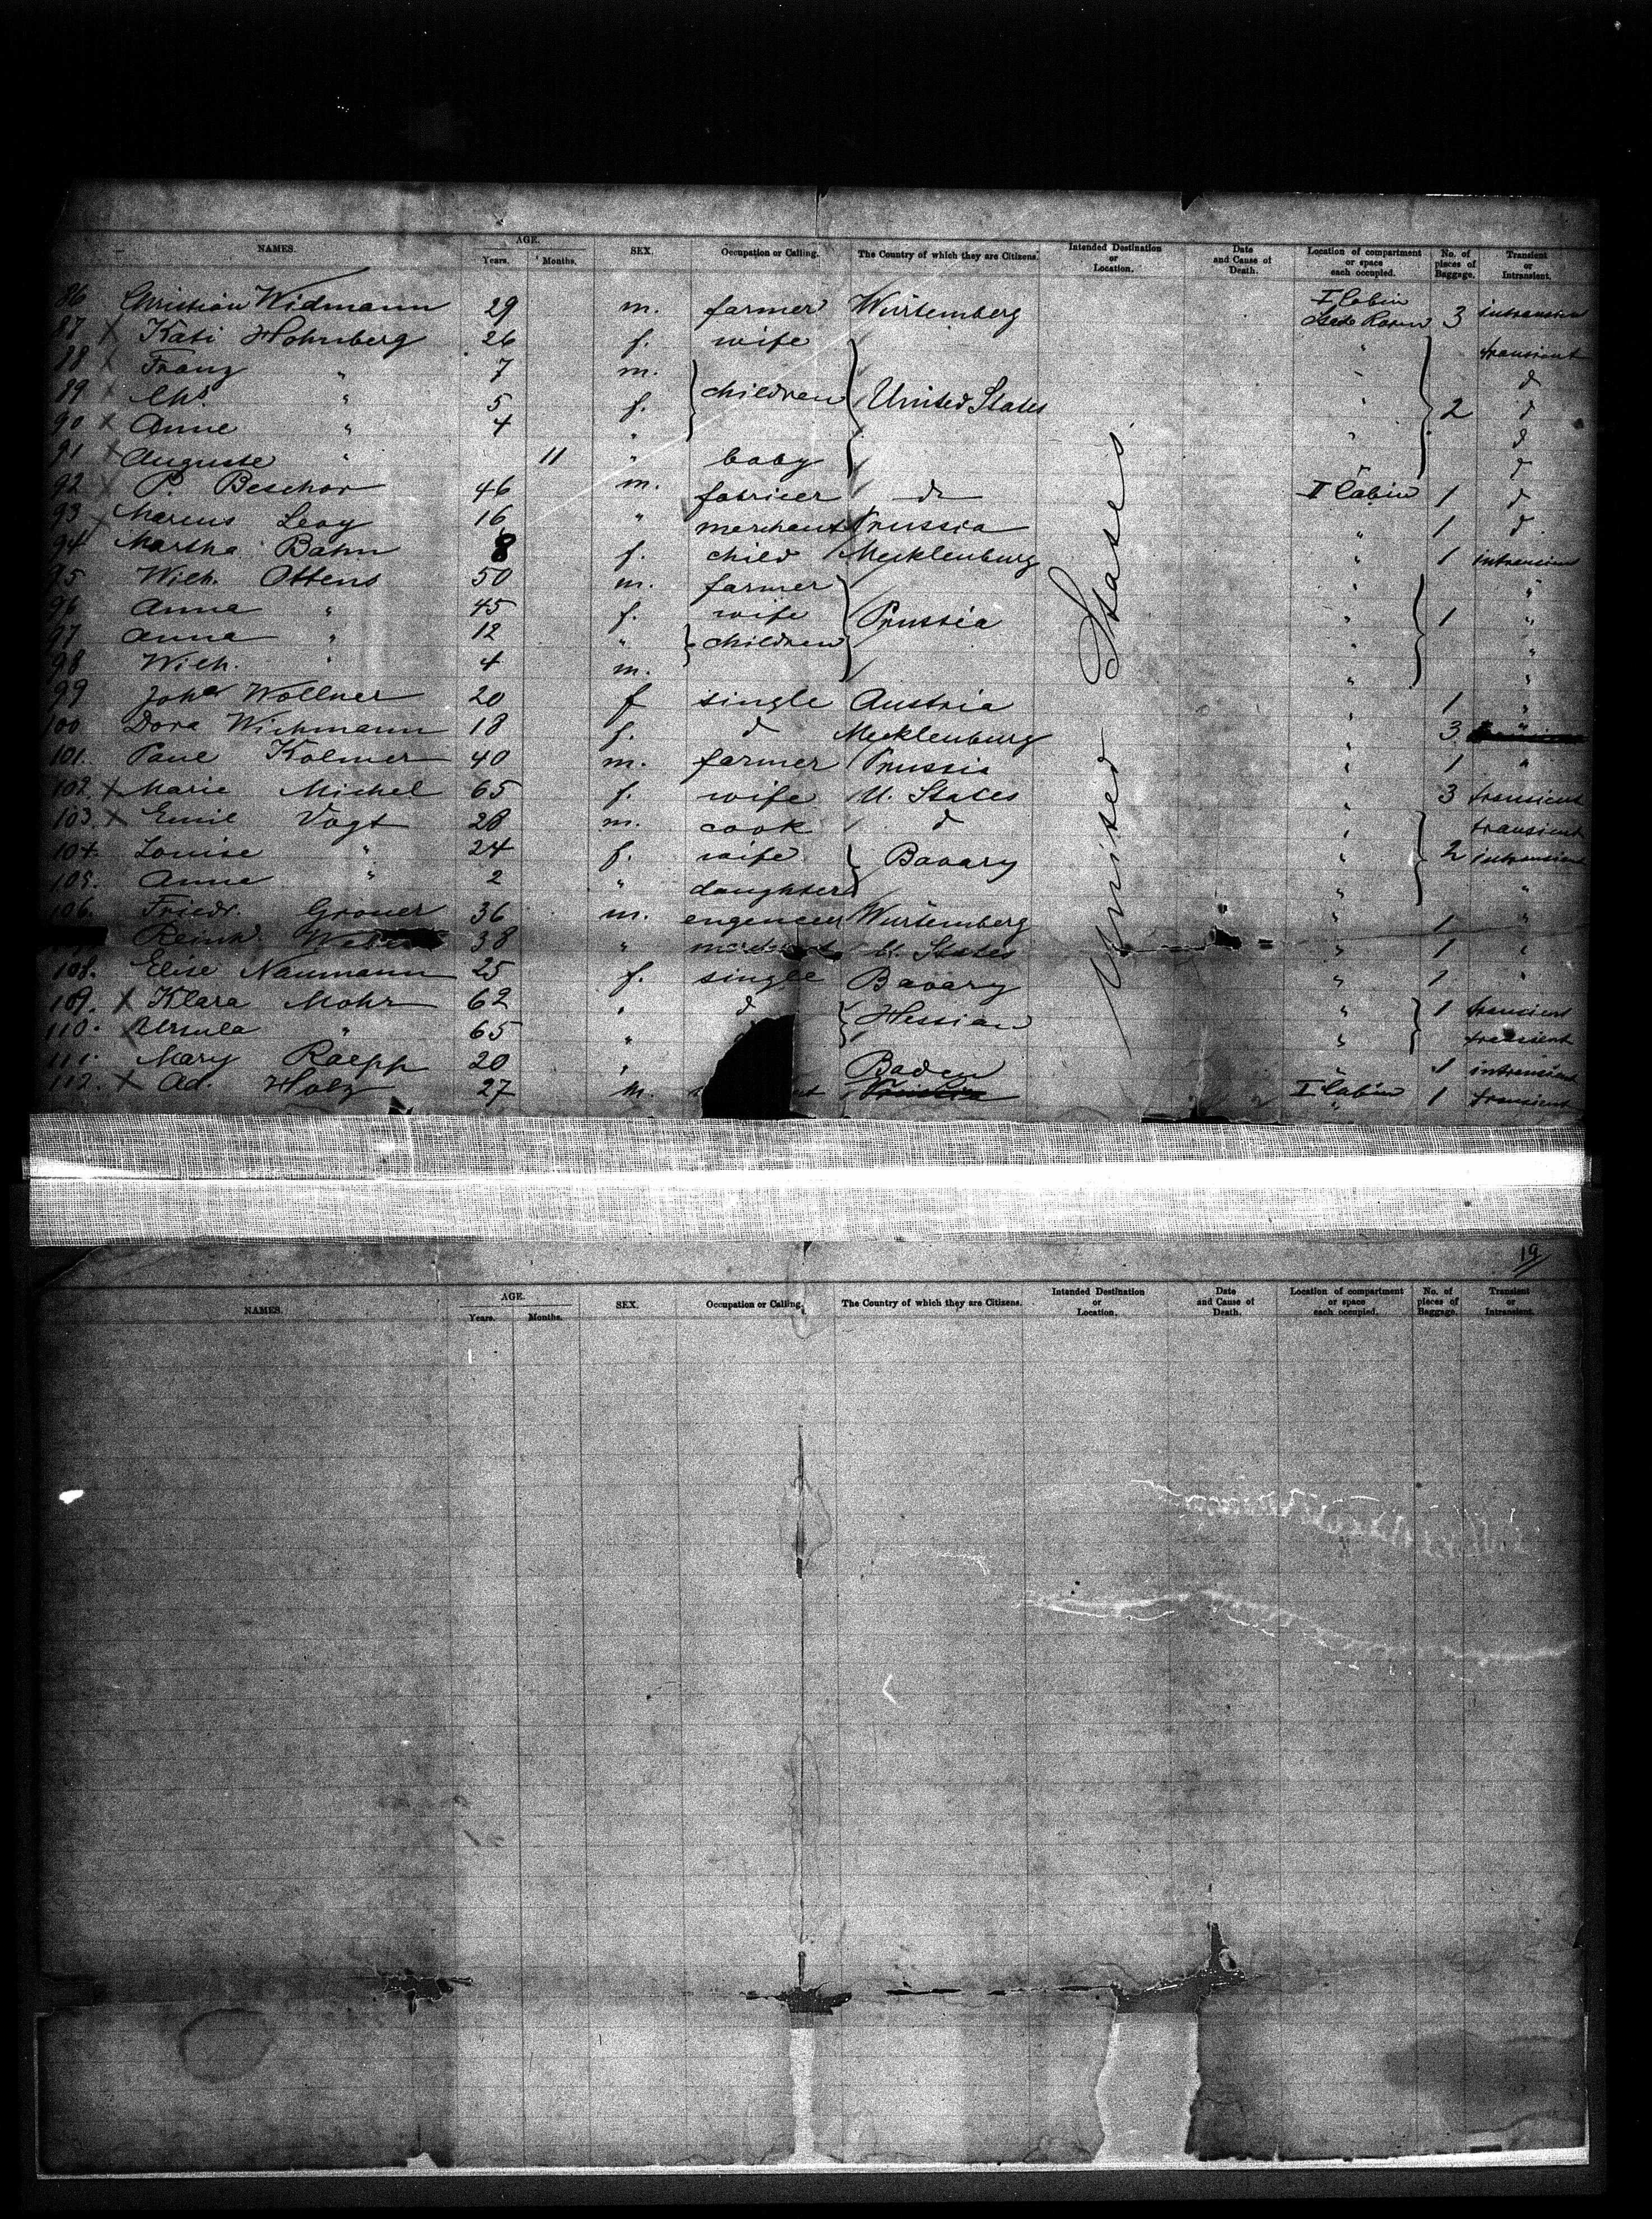 NAMES. AGE. Years. Months. SEX. Occupation or Calling. The Country of which they are Citizens. Intended Destination or Location. Date and Cause of Death. Location of compartment or space each occupied. No. of pieces of Baggage. Transient or Intransient.
86 Christian Widmann 29 m. farmer Würtemberg I Cabin 3 intransient
87 X Kati Hohnberg 26 f. wife " transient
88 X Franz " 7 m. children United States " d
89 X Chs " 5 f. " 2 d
90 X Anne " 4 " " d
91 X Auguste " 11 " baby " d
92 X P. Beschor 46 m. d I Cabin 1 d
93 X Marcus Levy 16 " merchant Prussia " 1 d
94 Martha Bahn 8 f. child Mecklenburg " 1 intransient
95 Wilh. Ottens 50 m. farmer Prussia " "
96 Anna " 45 f. wife " 1 "
97 Anna " 12 " children " "
98 Wilh. " 4 m. " "
99 Joha Wollner 20 f single Austria " 1 "
100 Dora Wichmann 18 f. d Mecklenburg " 3 "
101. Paul Kolmer 40 m. farmer Prussia " 1 "
102. X Marie Michel 65 f. wife U. States " 3 transient
103. X Emil Vogt 28 m. cook d " transient
104. Louise " 24 f. wife Bavary " 2 intransient
105. Anne " 2 " daughter " "
106. Friedr. Groner 36 m. engeneer Würtemberg " 1 "
Reinh. Weber 38 " U. States " 1 "
108. Elise Naumann 25 f. single Bavary " 1 "
109. X Klara Mohr 62 " d Hessian " 1 transient
110. X Ursula " 65 " " transient
111. Mary Raepp 20 " Baden " 1 intransient
112. X Ad. Holz 27 m. I Cabin 1 transient
United States
19
NAMES. AGE. Years. Months. SEX. Occupation or Calling. The Country of which they are Citizens. Intended Destination or Location. Date and Cause of Death. Location of compartment or space each occupied. No. of pieces of Baggage. Transient or Intransient.